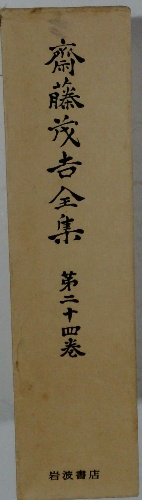 齋藤茂吉全集
第二十四卷
岩波書店